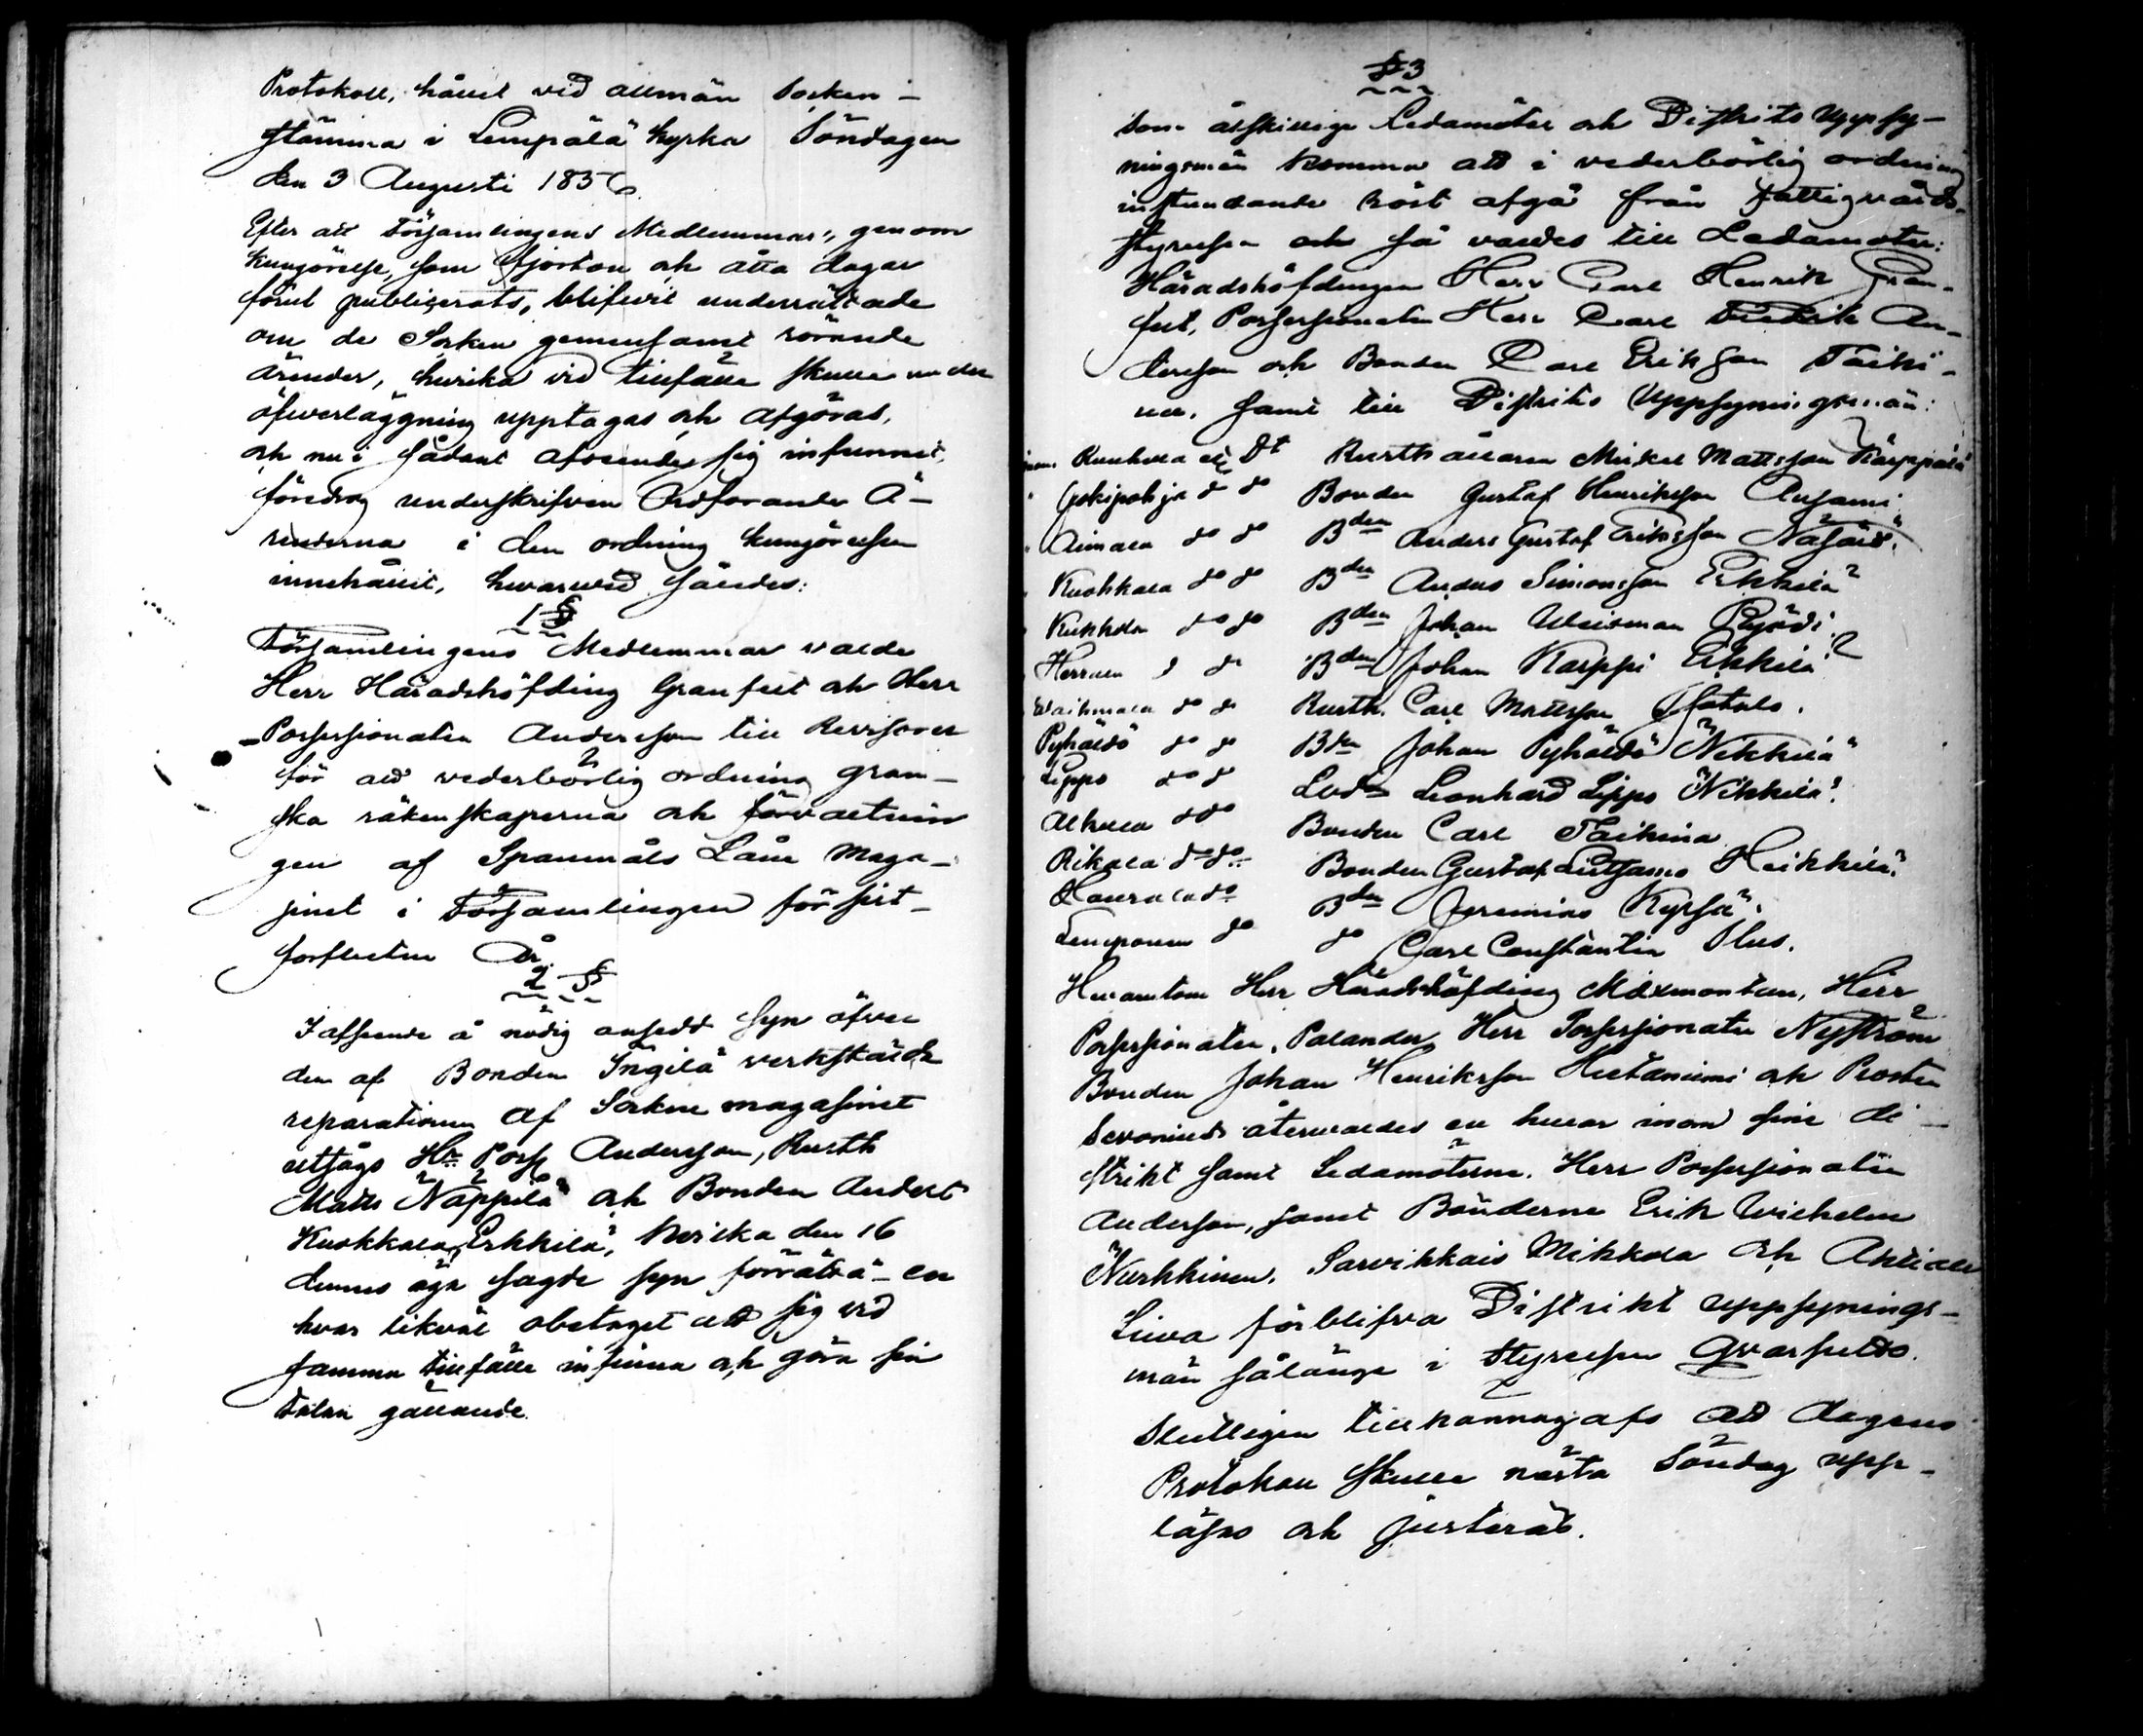 Protokoll, hållit vid allmän Socken-
stämma i Lempälä kyrka Söndagen
den 3 Augusti 1856.
Efter att Församlingens Medlemmar, genom
kungörelse, som fjorton och åtta dagar
förut publicerats, blifvit underrättade
om de Socken gemensamt rörande
ärender, hvilka vid tillfälle skulle under
öfverläggning upptagas och afgöras,
och nu i sådant afseende sig infunnit,
föredrog underskrifven Ordförande Ä-
renderna i den ordning kungörelsen
innehållit, hvarvid såled:
1 §
Församlingens Medlemmar valde
Herr Häradshöfding Granfelt och Herr
Possessionaten Andersson till Revisorer
för att vederbörlig ordning gran-
ska räkenskaperna och förvaltnin
gen af Spannmåls Låne Maga-
sinet i Församlingen för sist-
förflutne År.
2 §
I afseende å nödig ansedd syn öfver
den af Bonden Ingilä verkstälde
reparationen af Sockne magasinet
utsågs Hr Poss Andersson, Rusth
Matts Näppilä och Bonden Anders
Kuokkala Erkkilä, hvilka den 16
dennes äga sagde syn förrätta - en
hvar likväl obetaget att sig vid
samma tillfälle infinna och göra sin
talan gällande.
§ 3
Som åtskillige Ledamöter och Distrikts Uppsy-
ningsmän komma att i vederbörlig ordning
instundande höst afgå från Fattigvårds-
styrelsen och så valdes till Ledamöter:
Häradshöfdingen Herr Carl Henrik Gran-
felt, Possessionaten Herr Carl Fredrik An-
dersson och Bonden Carl Eriksson Taiki-
na. samt till Distrikts Uppsyningsmän:
Kuukula Dt Rusthållaren Mickel Mattsson Kärppälä
" Jokipohja do do Bonden Gustaf Henriksson Ansami
" Aimala do do Bden Anders Gustaf Eriksson Näsäri
" Kuokkala do do Bden Anders Simonsson Erkkilä
" Kukkola do do Bden Johan Weisman Pyödi
Herrala d do Bden Johan Karppi Erkkilä
Waihmala do do Rusth. Carl Mattsson Isotalo.
Pyhältö do do Bden Johan Pyhältö Nikkilä
Lippo do do Leonhard Lippo Nikkilä.
Alkula do do Bonden Carl Taikina
Rikala do do Bonden Gustaf Heikkilä.
Haurala do Bden Jeremias Kyrsä.
Lempoinen do do Carl Constantin Plus.
Hvarutom Herr Häradshöfding Maxmontan, Herr
Possessionaten Palander, Herr Possessionaten Nyström
Bonden Johan Henriksson Hietaniemi och Prosten
Savonius återvaldes en hvar inom sine di-
strikt samt Ledamöterne Herr Possessionaten
Andersson, samt Bönderne Erik Wilhelm
Nurkkinen, Sarvikkais Mikkola och Ahtiala
Liuva förblifva Distrikt uppsynings-
män sålänge i Styrelsen qvarsutto.
Slutligen tillkännagafs att dagens
Protokoll skulle nästa Söndag upp-
läsas och justeras.